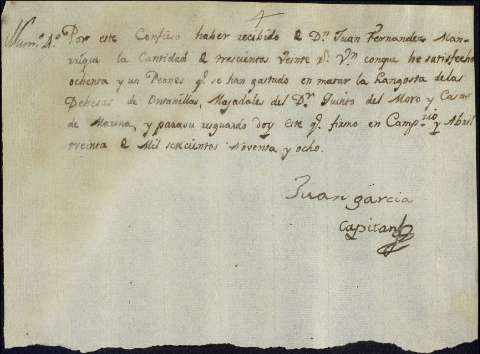 4
Num.º 4.º Por este Confieso haber recibido de D.n Juan Fernandez Man-
rrique la Cantidad de trescientos veinte r.s V.n conque he satisfecho
ochenta y un Peones q.e se han gastado en matar la Langosta de las
Dehesas de Ontanillas, Majadales del D.n Quinto del Moro y Casar
de Marina, y parasu resguardo doy este q.e firmo en Camp.rio y Abril
treinta de Mil setecientos Noventa y ocho.
Juan garcia
Capitan